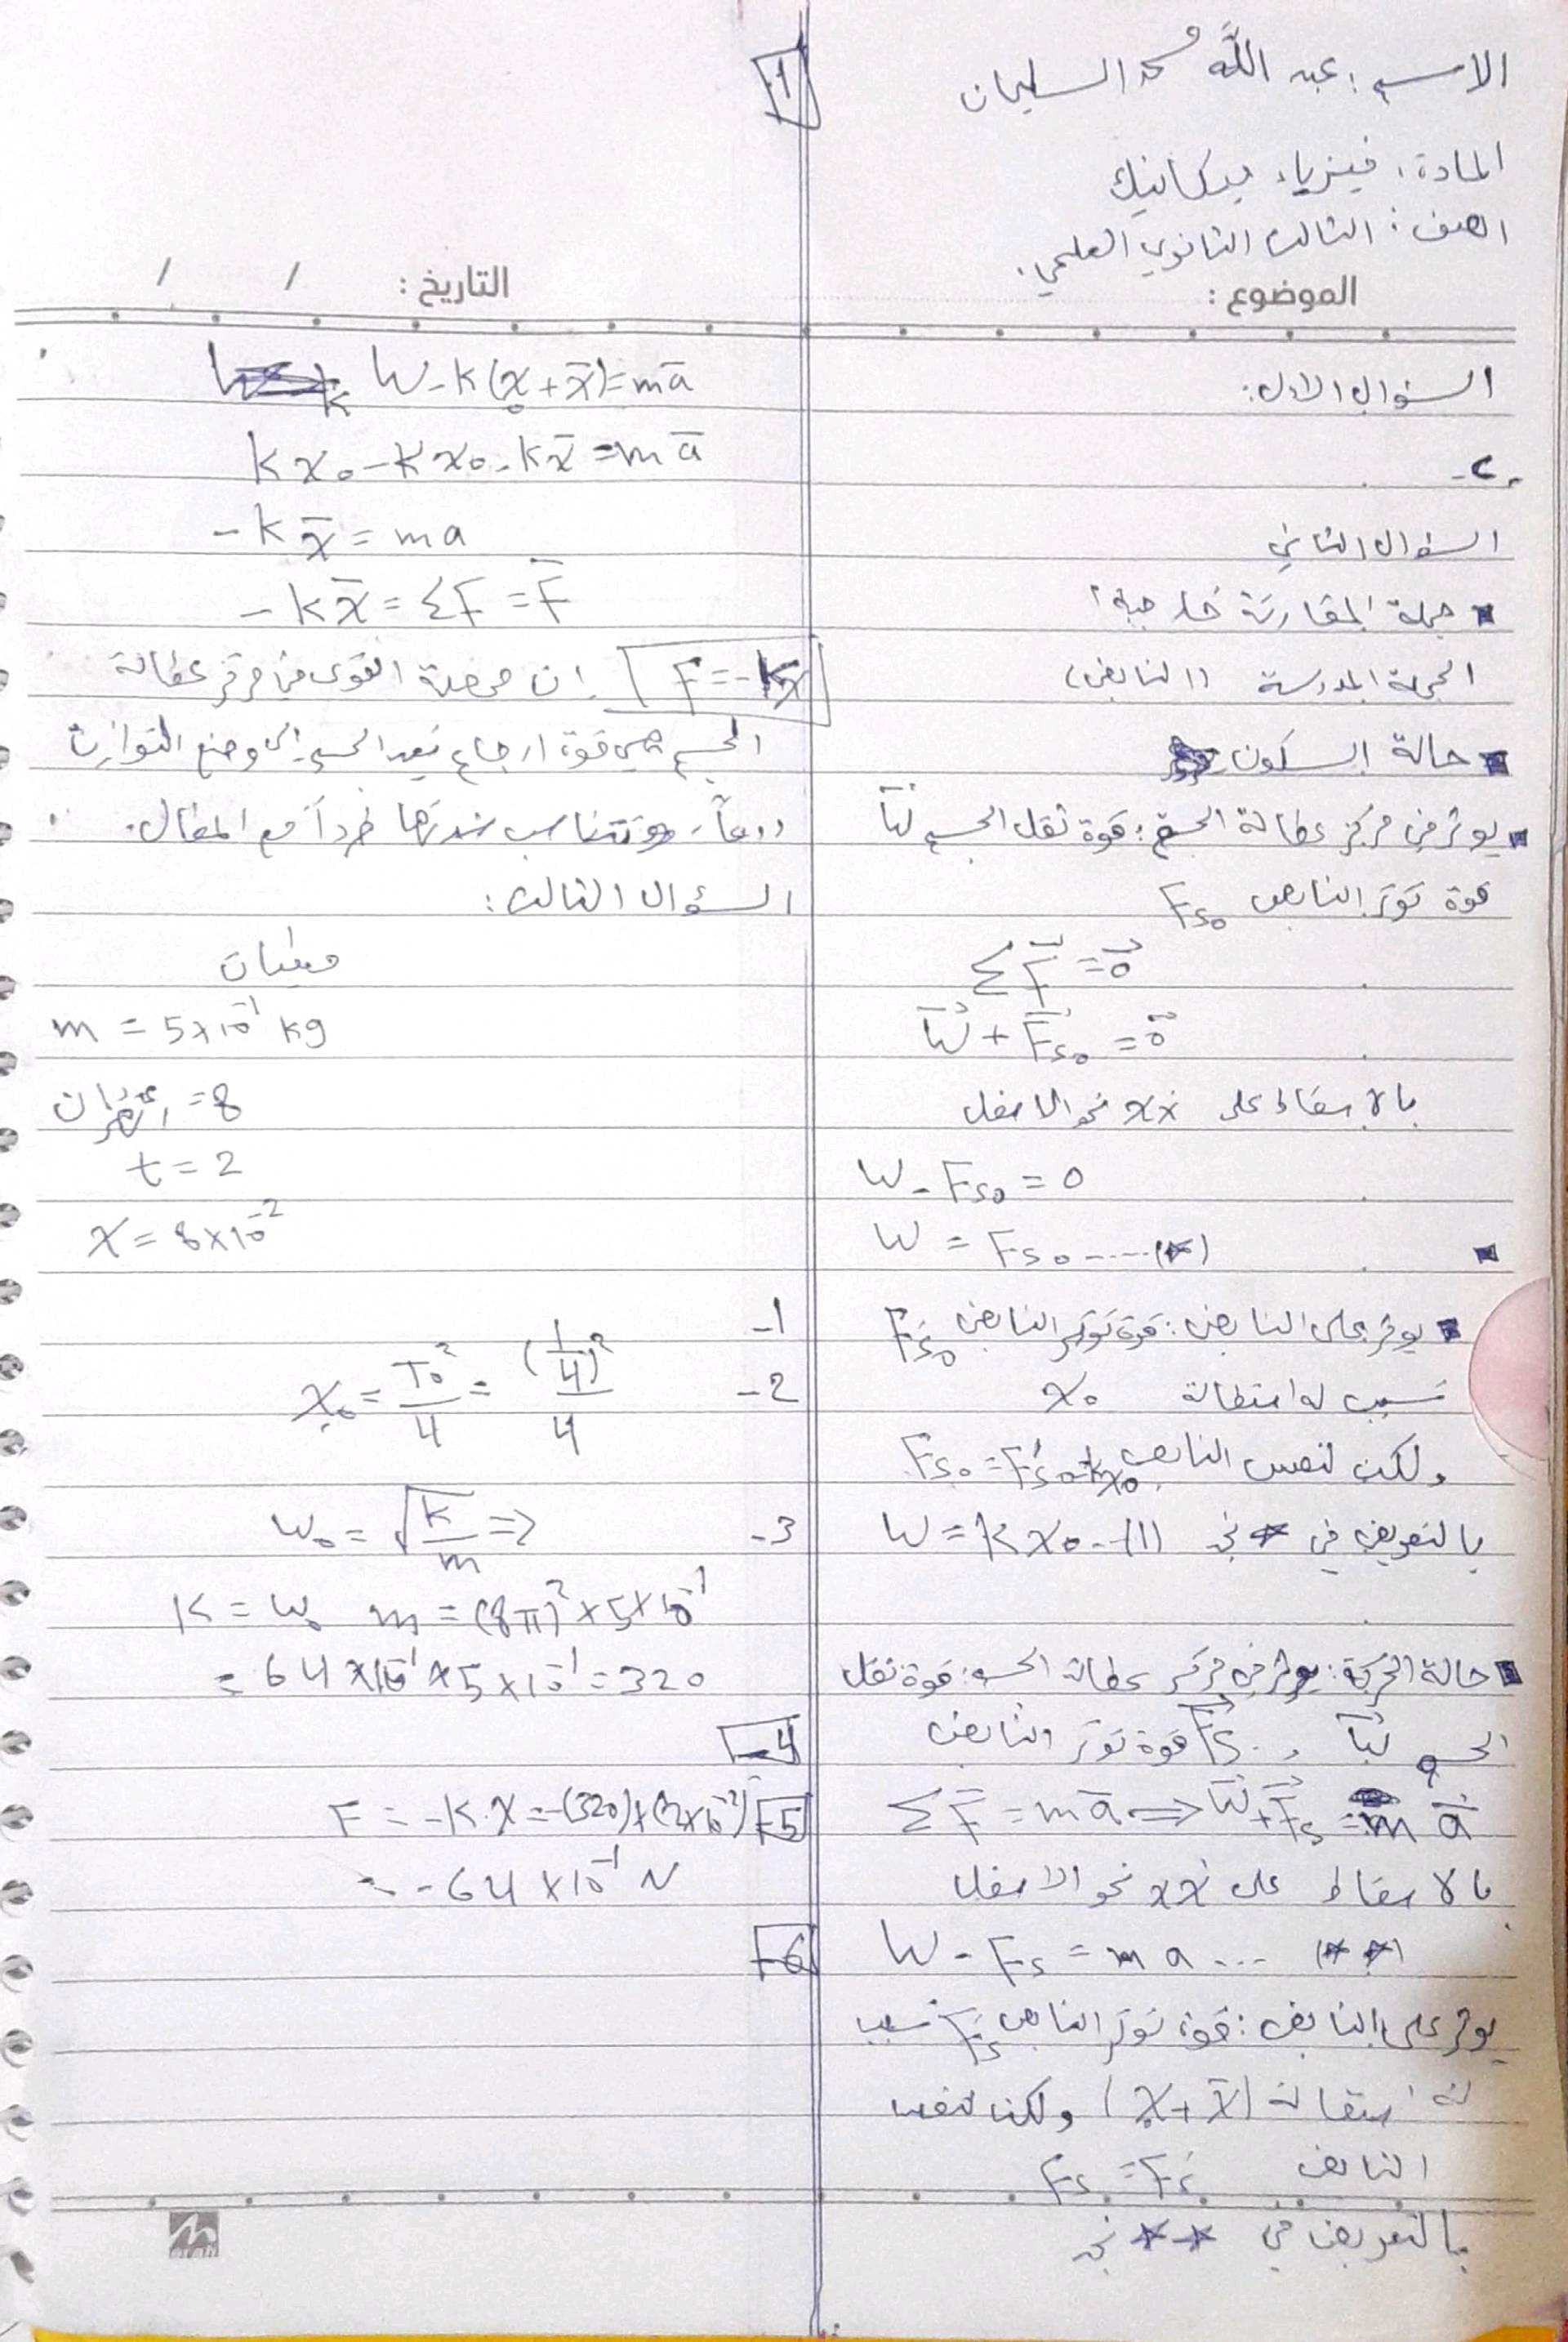 الاسم: عبد الله محمد السليمان
1
المادة: فيزياء ميكانيك
الصف: الثالث الثانوي العلمي.
الموضوع:
التاريخ: / /
السؤال الاول:
2-
السؤال الثاني
جملة المقارنة خارجية:
الجملة المدروسة (النابض)
حالة السكون
يؤثر في مركز عطالة الجسم: قوة ثقل الجسم W
قوة توتر النابض Fs₀
ΣF = 0
W + Fs₀ = 0
بالاسقاط على xx́ نحو الاسفل
W - Fs₀ = 0
W = Fs₀ ---- (*)
يؤثر على النابض: قوة توتر النابض F́s₀
تسبب له استطالة x₀
ولكن لنفس النابض Fs₀ = F́s₀ = kx₀
بالتعويض في * نجد W = kx₀ -- (1)
حالة الحركة: يؤثر في مركز عطالة الجسم: قوة ثقل
الجسم W , Fs قوة توتر النابض
ΣF = ma ⇒ W + Fs = m a
بالاسقاط على xx́ نحو الاسفل
W - Fs = m a ... (**)
يؤثر على النابض: قوة توتر النابض F́s تسبب
له استطالة (x₀ + x) ولكن لنفس
النابض Fs = F́s
بالتعويض في ** نجد
W - k(x₀ + x) = ma
kx₀ - kx₀ - kx = ma
-kx = ma
-kx = ΣF = F
F = -kx ان محصلة القوى في مركز عطالة
الجسم هي قوة ارجاع تعيد الجسم إلى وضع التوازن
دوماً، وتتناسب شدتها طرداً مع المطال.
السؤال الثالث:
معطيات
m = 5×10⁻¹ kg
8 =
t = 2
x = 8×10⁻²
-1
-2 x₀ = T₀²/4 = (1/4)²/4
-3 ω₀ = √(k/m) ⇒
k = ω₀ m = (8π)² × 5×10⁻¹
= 64 × 10⁻¹ × 5×10⁻¹ = 320
-4
-5 F = -k.x = -(320)×(2×10⁻²)
= -64×10⁻¹ N
-6